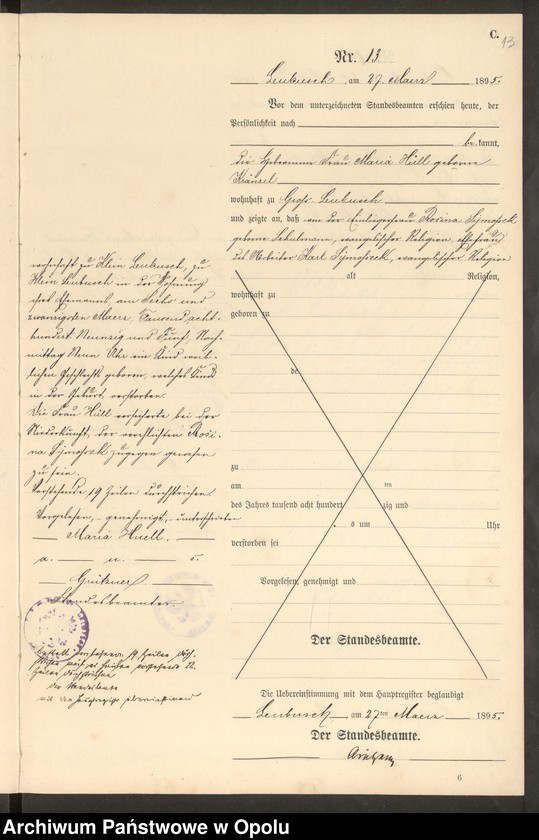 C.
13
Nr. 13
Leubusch, am 27 Maerz 1895.
Vor dem unterzeichneten Standesbeamten erschien heute, der
Persönlichkeit nach
be kannt,
die Hebamme Frau Maria Hüll geborne
wohnhaft zu Groß Leubusch
und zeigte an, daß von der Rosina
geborne evangelischer Religion, Ehefrau
des Arbeiter Karl evangelischer Religion
alt Religion,
wohnhaft zu
geboren zu
de
zu
am ten
des Jahres tausend acht hundert zig und
s um Uhr
verstorben sei
Vorgelesen, genehmigt und
Der Standesbeamte.
wohnhaft zu Klein Leubusch, zu
Klein Leubusch in der Wohnung
ihres Ehemannes, am Sechs und
zwanzigsten Maerz, Tausend acht-
hundert Neunzig und Fünf, Nach-
mittag Neun Uhr ein Kind weib-
lichen Geschlechts geboren, welches Kind
in der Geburt verstorben.
Die Frau Hüll versicherte bei der
Niederkunft, der verehelichten Rosi-
na zugegen gewesen
zu sein.
Vorstehende 19 Zeilen durchstrichen.
Vorgelesen, genehmigt, unterschrieben
Maria Huell.
a. u. s.
Standesbeamter
Die Uebereinstimmung mit dem Hauptregister beglaubigt
Leubusch, am 27ten Maerz 1895.
Der Standesbeamte.
6
Archiwum Państwowe w Opolu